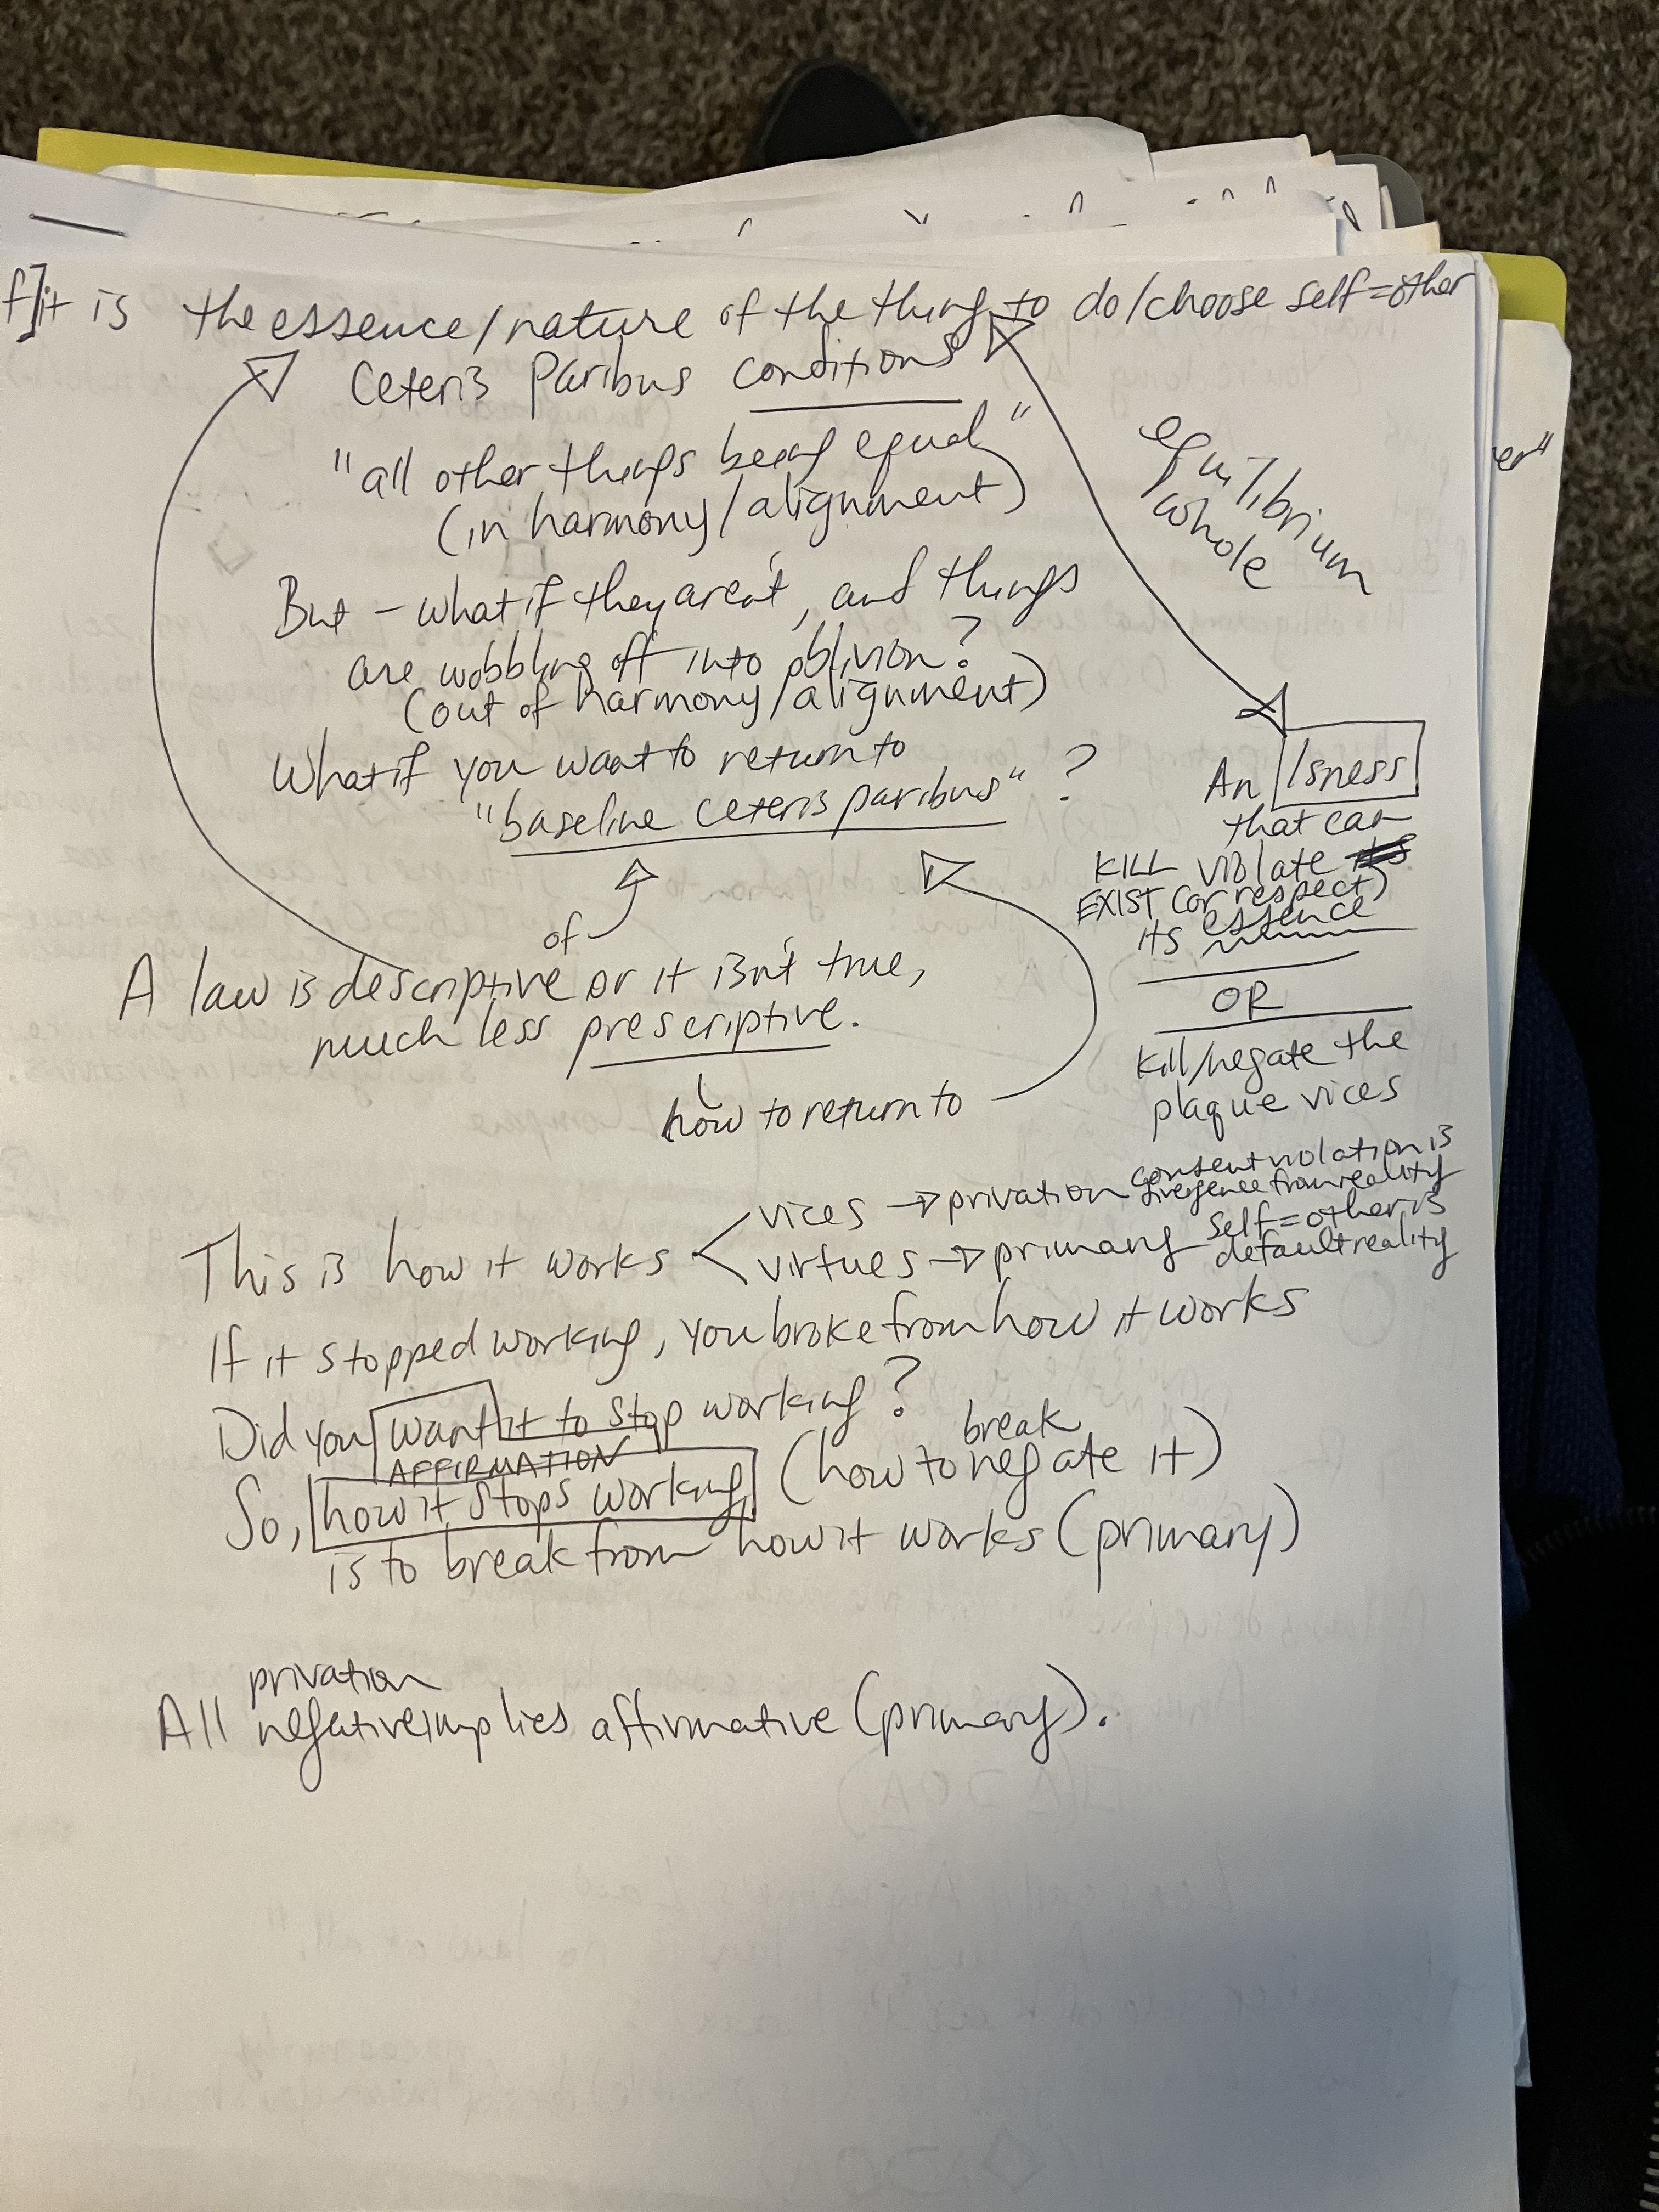 f] it is the essence/nature of the thing to do/choose self=other
Ceteris Paribus conditions
"all other things being equal"
(in harmony/alignment)
equilibrium
whole
er"
But - what if they aren't, and things
are wobbling off into oblivion?
(out of harmony/alignment)
What if you want to return to
"baseline ceteris paribus"?
of
A law is descriptive or it isn't true,
much less prescriptive.
how to return to
An Isness
that can
KILL violate
EXIST (or respect)
its essence
OR
kill/negate the
plaque vices
This is how it works
vices → privation consent violation is
divergence from reality
virtues → primary self=other is
default reality
If it stopped working, you broke from how it works
Did you want it to stop working?
AFFIRMATION
break
So, how it stops working, (how to negate it)
is to break from how it works (primary)
privation
All negative implies affirmative (primary).